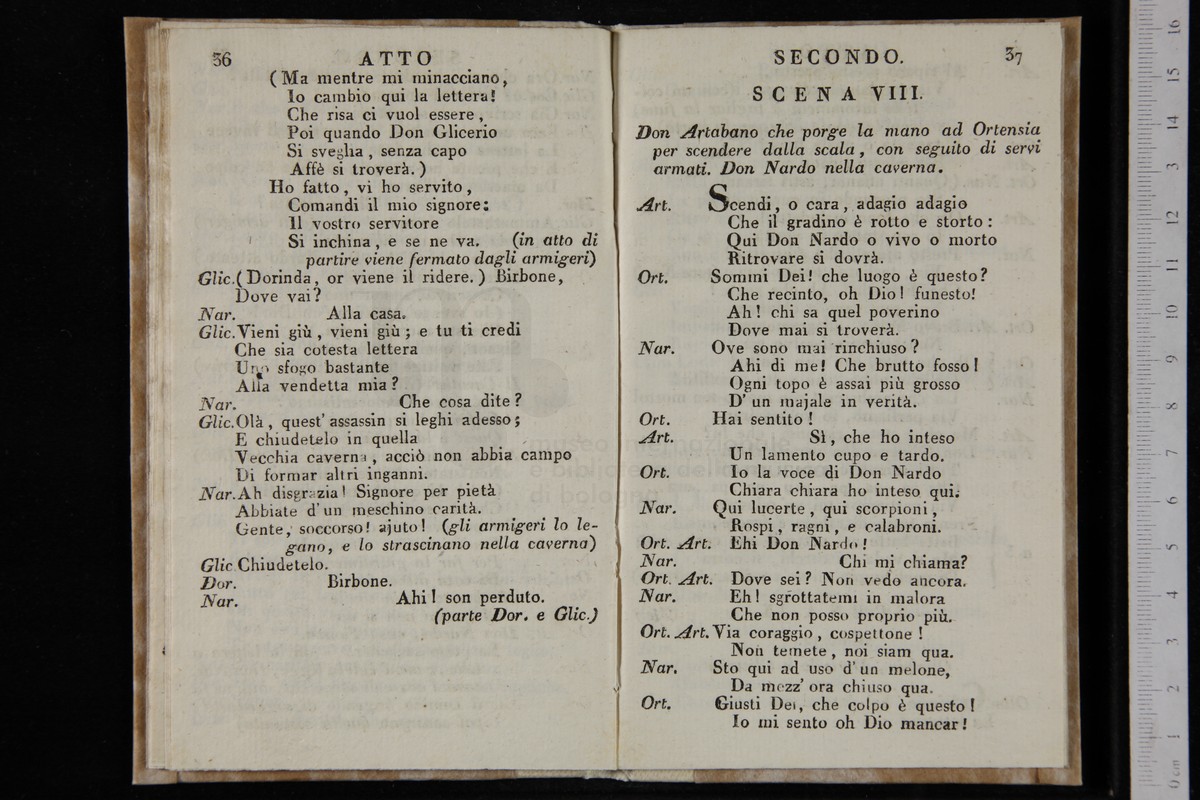 36 ATTO
(Ma mentre mi minacciano,
Io cambio qui la lettera!
Che risa ci vuol essere,
Poi quando Don Glicerio
Si sveglia, senza capo
Affè si troverà.)
Ho fatto, vi ho servito,
Comandi il mio signore:
Il vostro servitore
Si inchina, e se ne va. (in atto di
partire viene fermato dagli armigeri)
Glic.(Dorinda, or viene il ridere.) Birbone,
Dove vai?
Nar. Alla casa.
Glic.Vieni giù, vieni giù; e tu ti credi
Che sia cotesta lettera
Uno sfogo bastante
Alla vendetta mia?
Nar. Che cosa dite?
Glic.Olà, quest' assassin si leghi adesso;
E chiudetelo in quella
Vecchia caverna, acciò non abbia campo
Di formar altri inganni.
Nar.Ah disgrazia! Signore per pietà
Abbiate d'un meschino carità.
Gente, soccorso! ajuto! (gli armigeri lo le-
gano, e lo strascinano nella caverna)
Glic.Chiudetelo.
Dor. Birbone.
Nar. Ahi! son perduto.
(parte Dor. e Glic.)
SECONDO. 37
SCENA VIII.
Don Artabano che porge la mano ad Ortensia
per scendere dalla scala, con seguito di servi
armati. Don Nardo nella caverna.
Art. Scendi, o cara, adagio adagio
Che il gradino è rotto e storto:
Qui Don Nardo o vivo o morto
Ritrovare si dovrà.
Ort. Sommi Dei! che luogo è questo?
Che recinto, oh Dio! funesto!
Ah! chi sa quel poverino
Dove mai si troverà.
Nar. Ove sono mai rinchiuso?
Ahi di me! Che brutto fosso!
Ogni topo è assai più grosso
D' un majale in verità.
Ort. Hai sentito!
Art. Sì, che ho inteso
Un lamento cupo e tardo.
Ort. Io la voce di Don Nardo
Chiara chiara ho inteso qui.
Nar. Qui lucerte, qui scorpioni,
Rospi, ragni, e calabroni.
Ort. Art. Ehi Don Nardo!
Nar. Chi mi chiama?
Ort. Art. Dove sei? Non vedo ancora.
Nar. Eh! sgrottatemi in malora
Che non posso proprio più.
Ort. Art.Via coraggio, cospettone!
Non temete, noi siam qua.
Nar. Sto qui ad uso d' un melone,
Da mezz' ora chiuso qua.
Ort. Giusti Dei, che colpo è questo!
Io mi sento oh Dio mancar!
museo internazionale
e biblioteca della musica
di bologna
0 cm 1 2 3 4 5 6 7 8 9 10 11 12 13 14 15 16